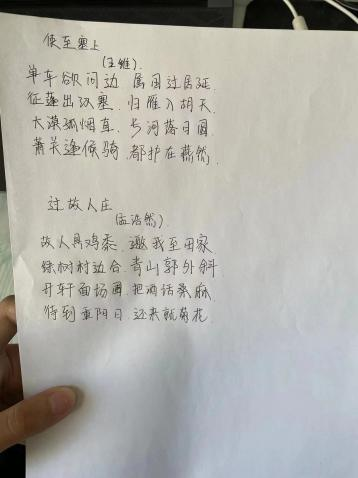 使至塞上
(王维).
单车欲问边 属国过居延
征蓬出汉塞. 归雁入胡天
大漠孤烟直. 长河落日圆
萧关逢候骑. 都护在燕然.
过故人庄
(孟浩然).
故人具鸡黍. 邀我至田家
绿树村边合. 青山郭外斜
开轩面场圃. 把酒话桑麻.
待到重阳日. 还来就菊花